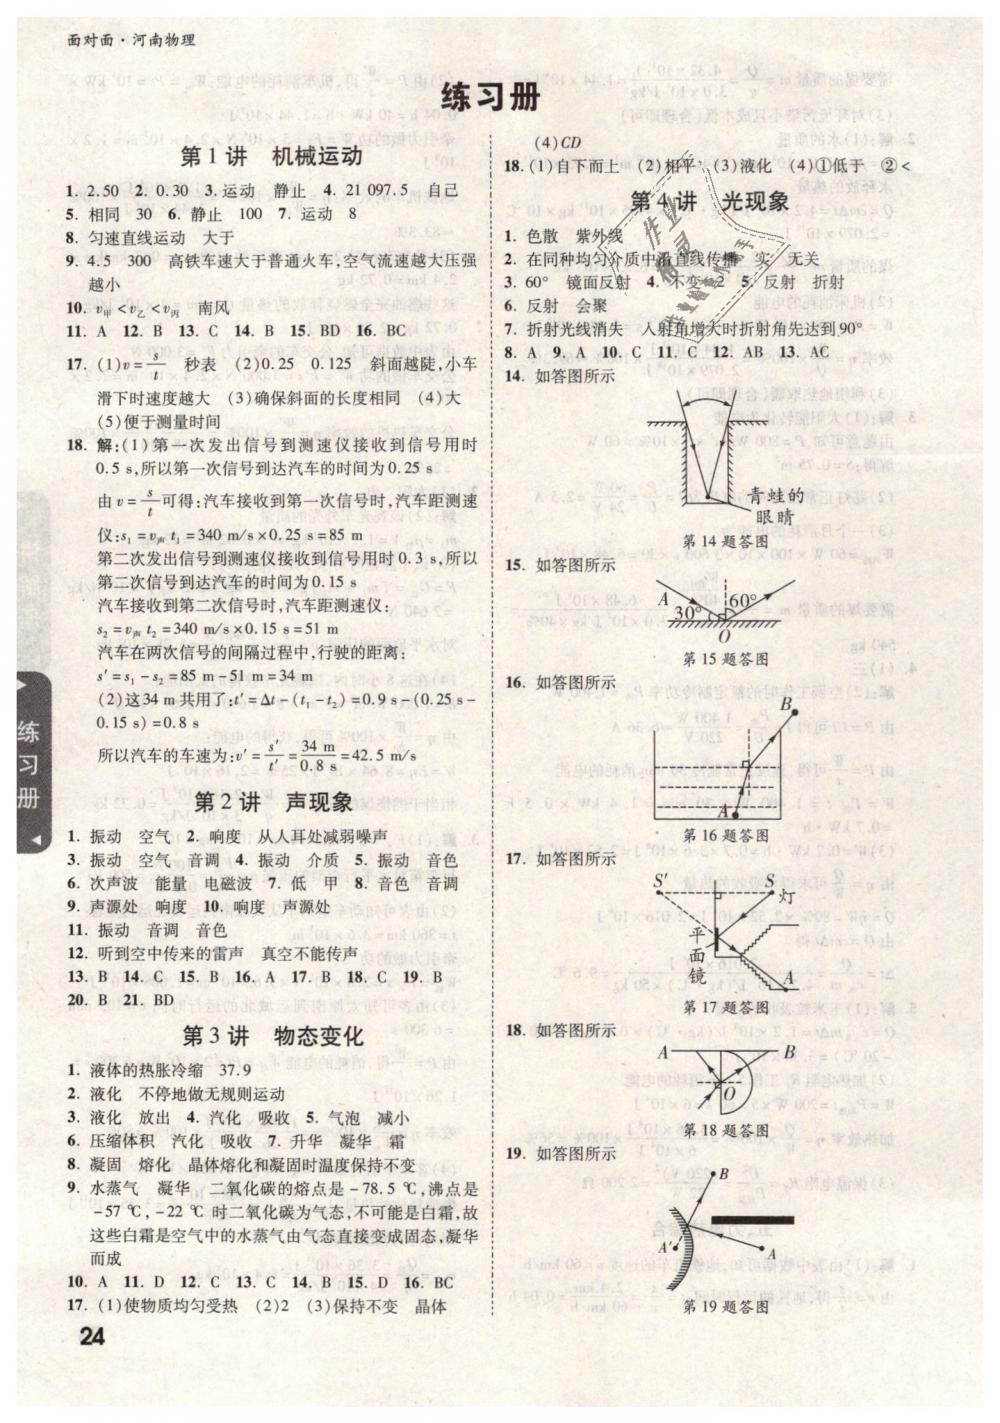 面对面·河南物理
练习册
第1讲 机械运动
1. 2.50 2. 0.30 3. 运动 静止 4. 21 097.5 自己
5. 相同 30 6. 静止 100 7. 运动 8
8. 匀速直线运动 大于
9. 4.5 300 高铁车速大于普通火车,空气流速越大压强
越小
10. v甲<v乙<v丙 南风
11. A 12. B 13. C 14. B 15. BD 16. BC
17. (1)v=s/t 秒表 (2)0.25 0.125 斜面越陡,小车
滑下时速度越大 (3)确保斜面的长度相同 (4)大
(5)便于测量时间
18. 解:(1)第一次发出信号到测速仪接收到信号用时
0.5 s,所以第一次信号到达汽车的时间为0.25 s
由v=s/t可得:汽车接收到第一次信号时,汽车距测速
仪:s₁=v声 t₁=340 m/s×0.25 s=85 m
第二次发出信号到测速仪接收到信号用时0.3 s,所以
第二次信号到达汽车的时间为0.15 s
汽车接收到第二次信号时,汽车距测速仪:
s₂=v声 t₂=340 m/s×0.15 s=51 m
汽车在两次信号的间隔过程中,行驶的距离:
s′=s₁-s₂=85 m-51 m=34 m
(2)这34 m共用了:t′=Δt-(t₁-t₂)=0.9 s-(0.25 s-
0.15 s)=0.8 s
所以汽车的车速为:v′=s′/t′=34 m/0.8 s=42.5 m/s
第2讲 声现象
1. 振动 空气 2. 响度 从人耳处减弱噪声
3. 振动 空气 音调 4. 振动 介质 5. 振动 音色
6. 次声波 能量 电磁波 7. 低 甲 8. 音色 音调
9. 声源处 响度 10. 响度 声源处
11. 振动 音调 音色
12. 听到空中传来的雷声 真空不能传声
13. B 14. C 15. B 16. A 17. B 18. C 19. B
20. B 21. BD
第3讲 物态变化
1. 液体的热胀冷缩 37.9
2. 液化 不停地做无规则运动
3. 液化 放出 4. 汽化 吸收 5. 气泡 减小
6. 压缩体积 汽化 吸收 7. 升华 凝华 霜
8. 凝固 熔化 晶体熔化和凝固时温度保持不变
9. 水蒸气 凝华 二氧化碳的熔点是-78.5 ℃,沸点是
-57 ℃,-22 ℃ 时二氧化碳为气态,不可能是白霜,故
这些白霜是空气中的水蒸气由气态直接变成固态,凝华
而成
10. A 11. D 12. C 13. C 14. B 15. D 16. BC
17. (1)使物质均匀受热 (2)2 (3)保持不变 晶体
24
练习册
(4)CD
18. (1)自下而上 (2)相平 (3)液化 (4)①低于 ②<
第4讲 光现象
1. 色散 紫外线
2. 在同种均匀介质中沿直线传播 实 无关
3. 60° 镜面反射 4. 不变 2 5. 反射 折射
6. 反射 会聚
7. 折射光线消失 入射角增大时折射角先达到90°
8. A 9. A 10. C 11. C 12. AB 13. AC
14. 如答图所示
青蛙的
眼睛
第14题答图
15. 如答图所示
A 30° 60°
O
第15题答图
16. 如答图所示
B
A
第16题答图
17. 如答图所示
S′ S 灯
平面镜
A
第17题答图
18. 如答图所示
A B
O
第18题答图
19. 如答图所示
B
A′ A
第19题答图